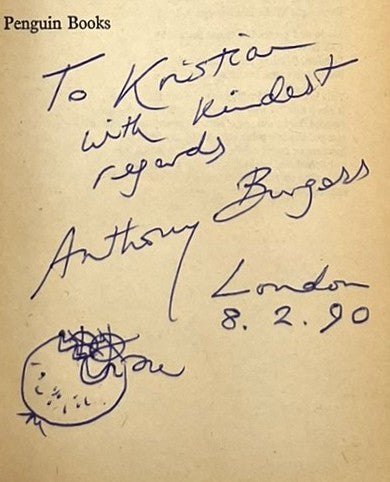 Penguin Books
To Kristian
with kindest
regards
Anthony Burgess
London
8. 2. 90